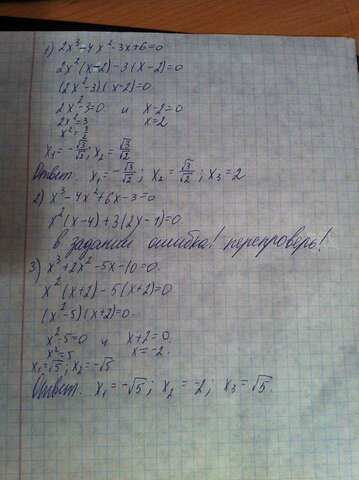 1) 2x³-4x²-3x+6=0
2x²(x-2)-3(x-2)=0
(2x²-3)(x-2)=0
2x²-3=0 и x-2=0
2x²=3 x=2
x²=3/2
x₁=-√3/√2; x₂=√3/√2
Ответ. x₁=-√3/√2; x₂=√3/√2; x₃=2
2) x³-4x²+6x-3=0
x²(x-4)+3(2x-1)=0
в задании ошибка! перепроверь!
3) x³+2x²-5x-10=0.
x²(x+2)-5(x+2)=0
(x²-5)(x+2)=0.
x²-5=0 и x+2=0.
x²=5 x=-2.
x₁=√5; x₂=-√5
Ответ. x₁=-√5; x₂=-2; x₃=√5.